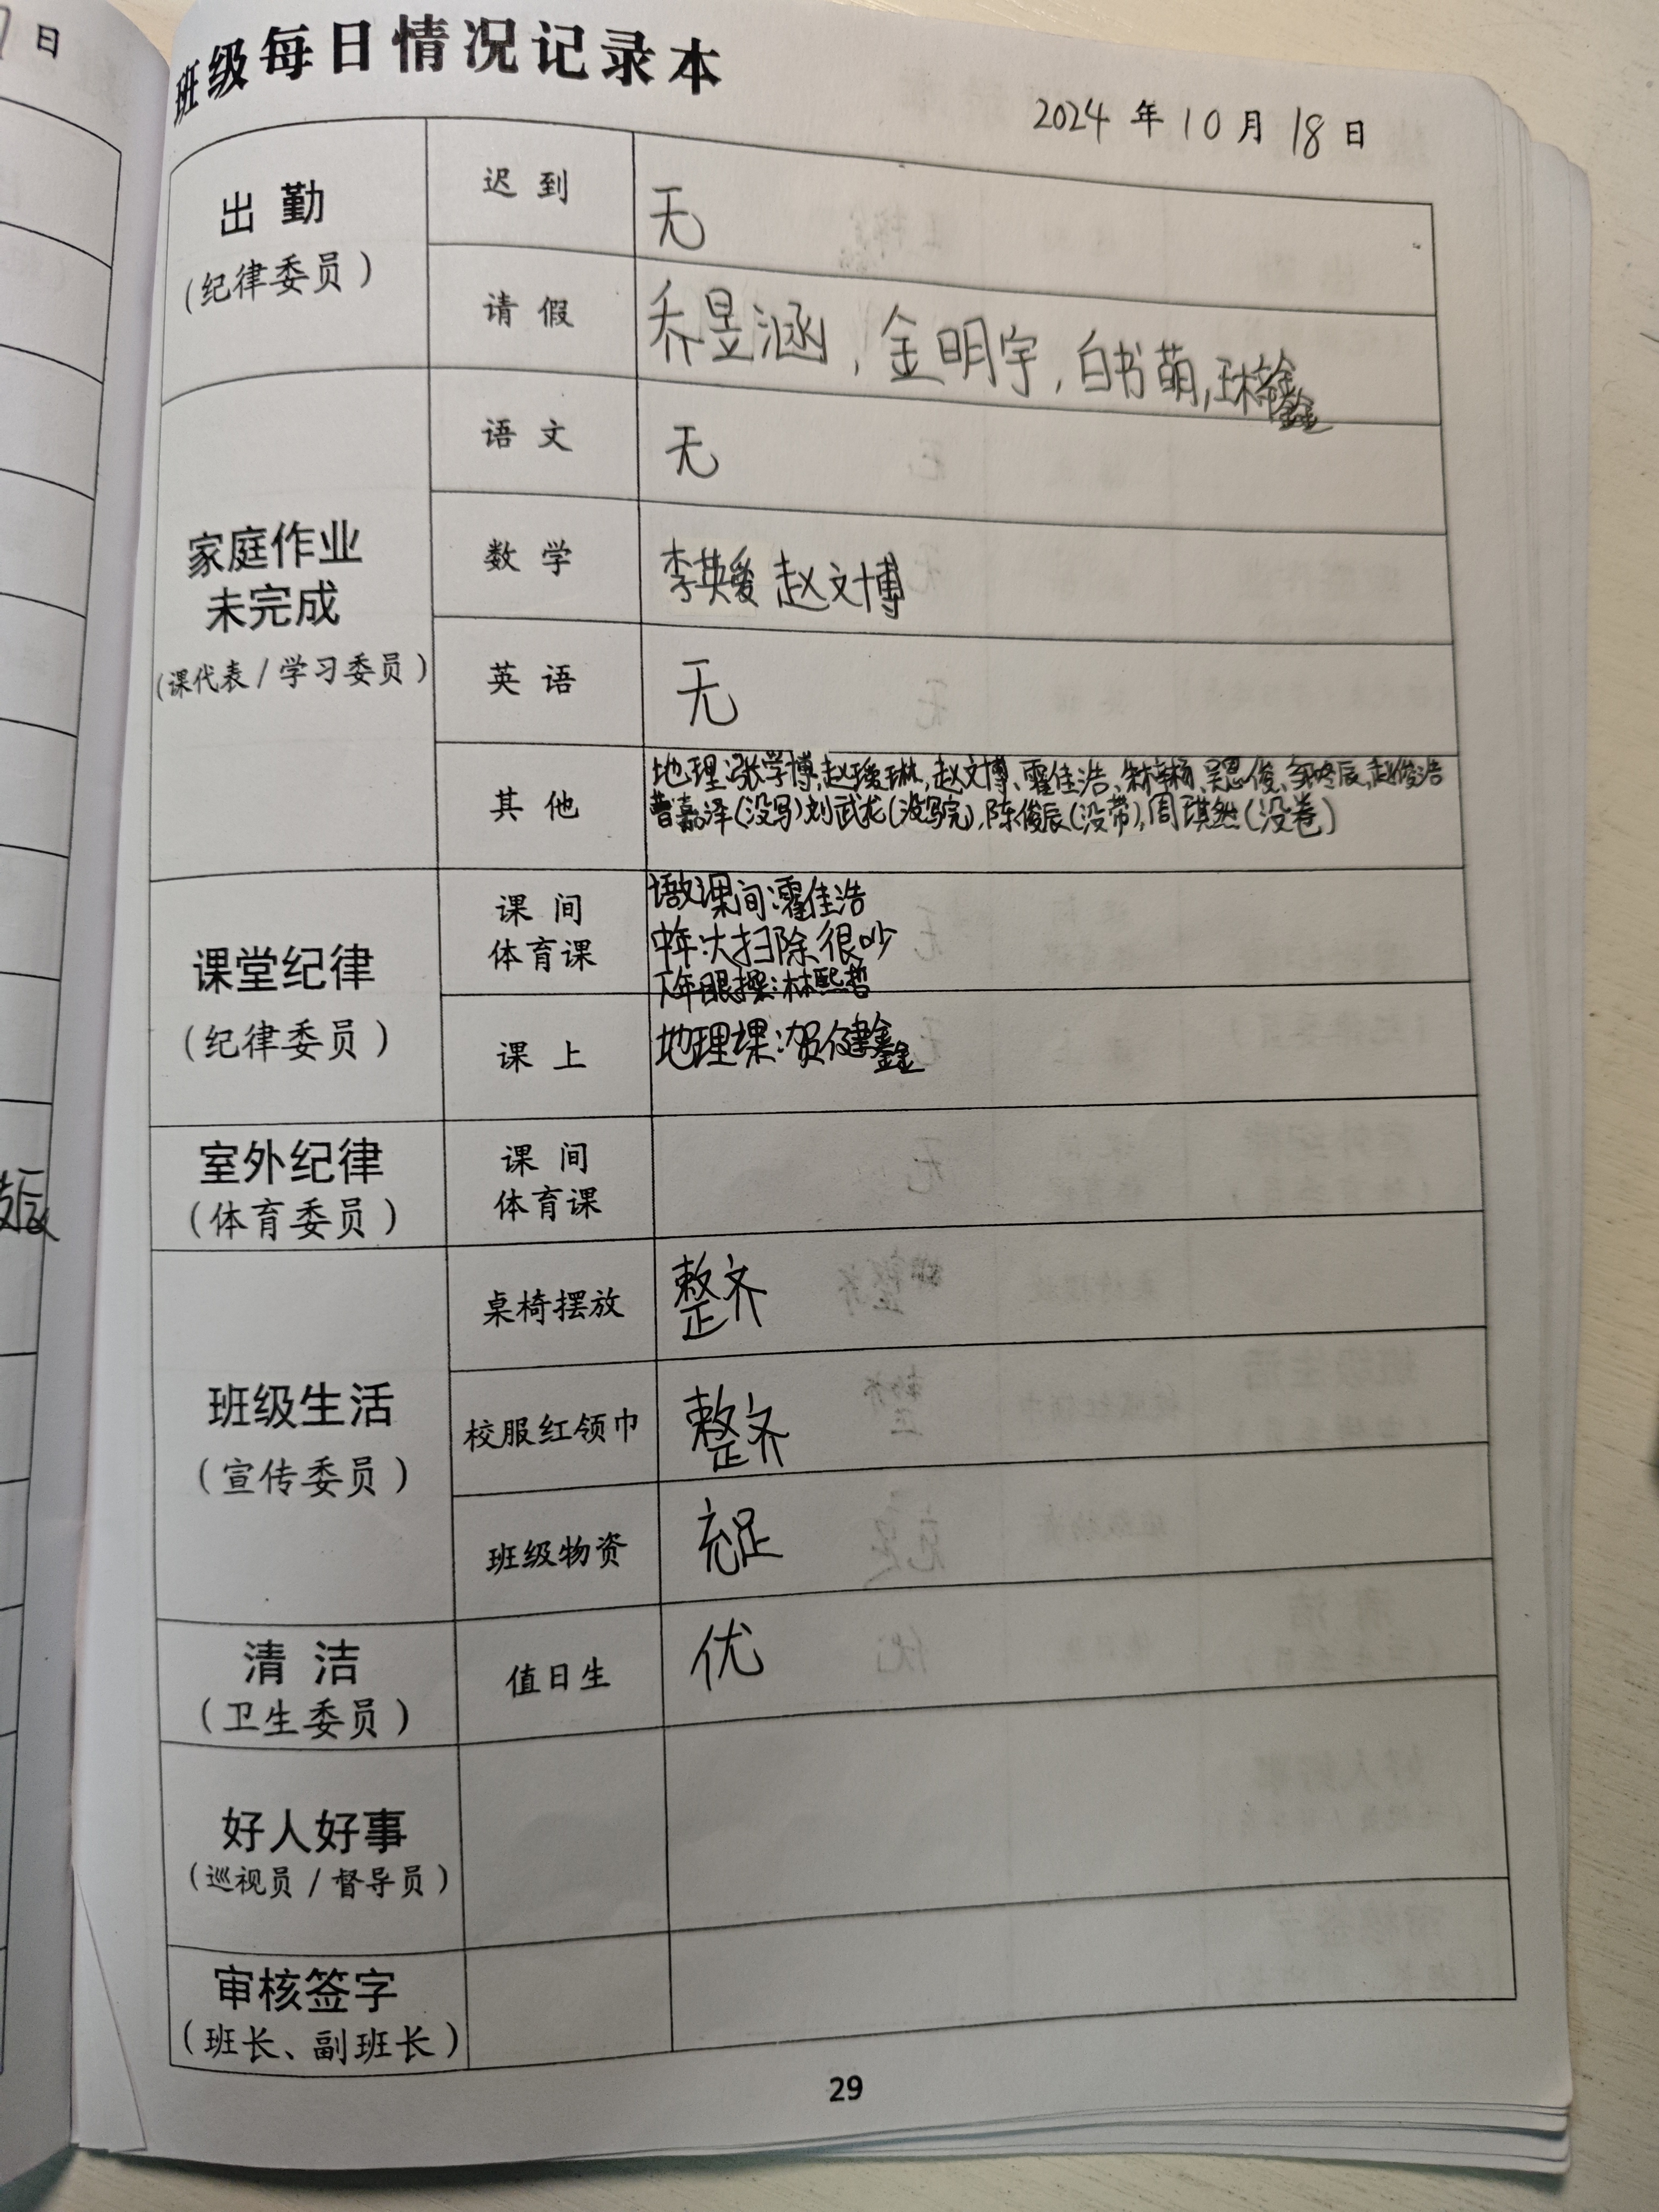 日
班级每日情况记录本
2024 年 10 月 18 日
出勤
(纪律委员)
迟到
无
请假
乔昱涵，金明宇，白书萌，
家庭作业
未完成
(课代表/学习委员)
语文
无
数学
李英爱 赵文博
英语
无
其他
地理:张学博、赵瑷琳、赵文博、霍佳浩、吴恩俊、赵俊浩
曹嘉泽(没写)刘武龙(没写完),陈俊辰(没带),周琪然(没卷)
课堂纪律
(纪律委员)
课间
体育课
课间:霍佳浩
中午:大扫除很吵
下午眼操:林熙哲
课上
地理课:贺健鑫
室外纪律
(体育委员)
课间
体育课
班级生活
(宣传委员)
桌椅摆放
整齐
校服红领巾
整齐
班级物资
充足
清洁
(卫生委员)
值日生
优
好人好事
(巡视员/督导员)
审核签字
(班长、副班长)
29